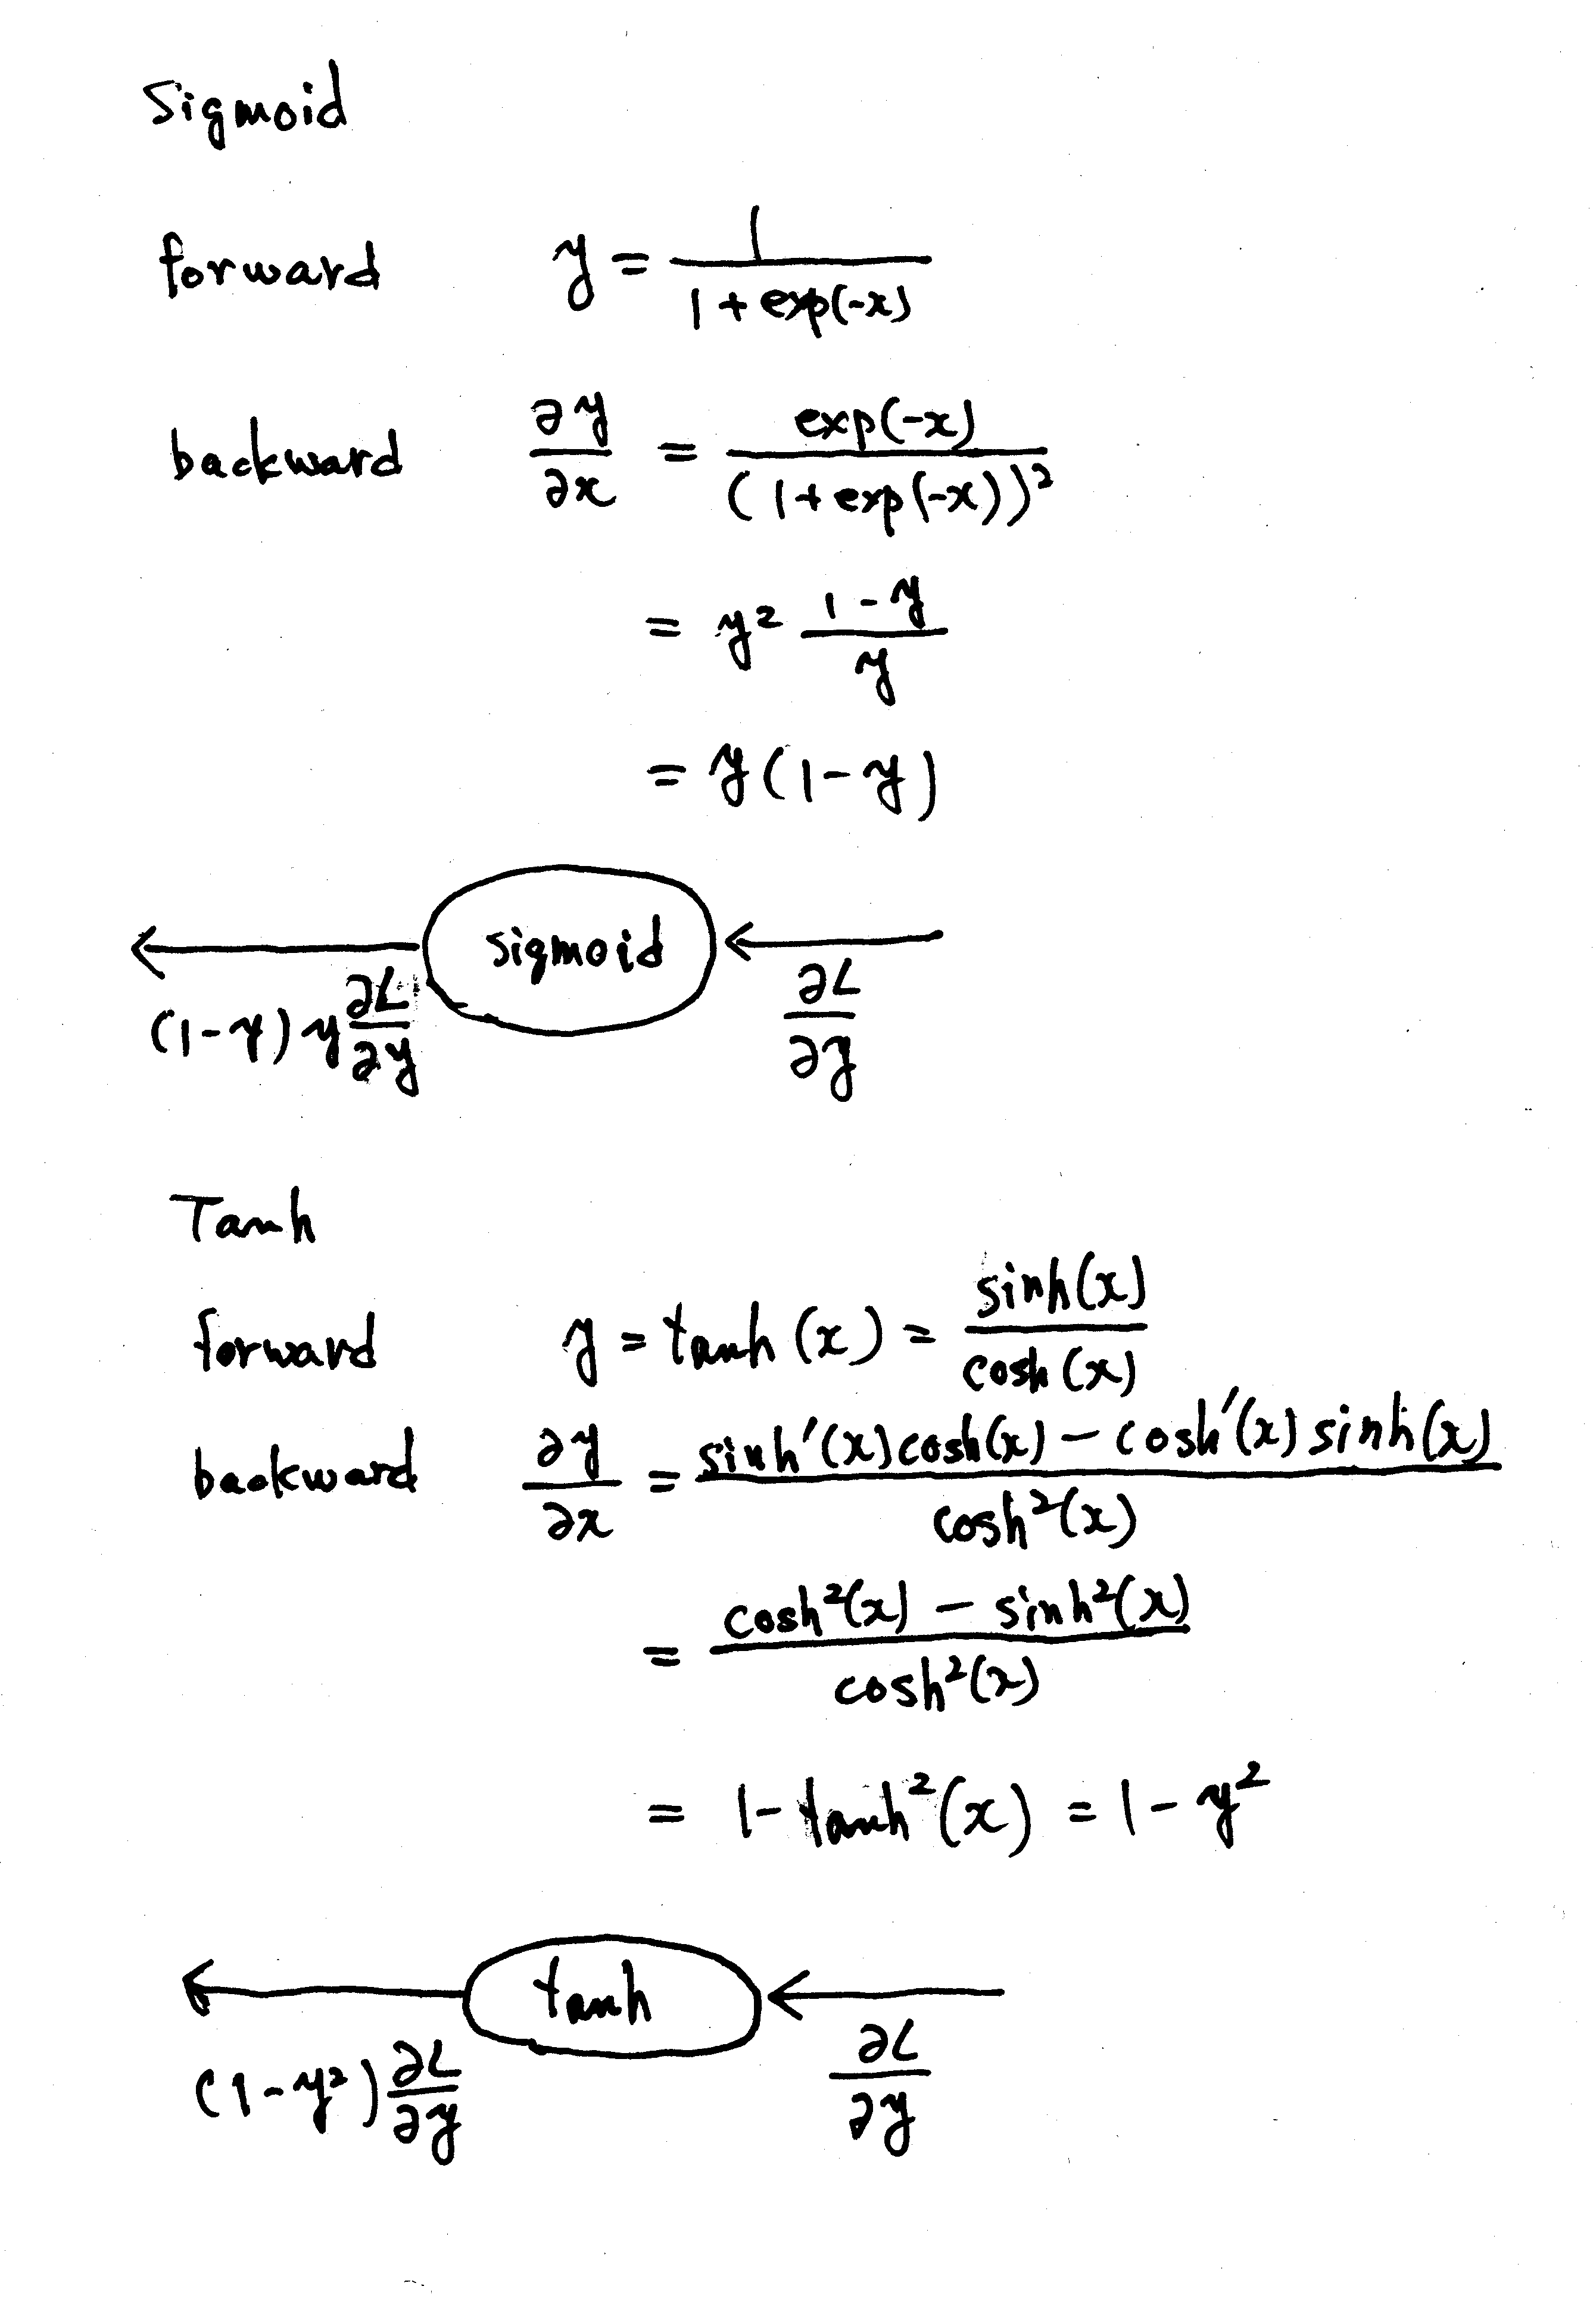 Sigmoid
forward y = 1 / (1 + exp(-x))
backward ∂y/∂x = exp(-x) / (1 + exp(-x))²
= y² (1 - y) / y
= y(1 - y)
sigmoid
(1 - y) y ∂L/∂y ∂L/∂y
Tanh
forward y = tanh(x) = sinh(x) / cosh(x)
backward ∂y/∂x = (sinh'(x) cosh(x) - cosh'(x) sinh(x)) / cosh²(x)
= (cosh²(x) - sinh²(x)) / cosh²(x)
= 1 - tanh²(x) = 1 - y²
tanh
(1 - y²) ∂L/∂y ∂L/∂y